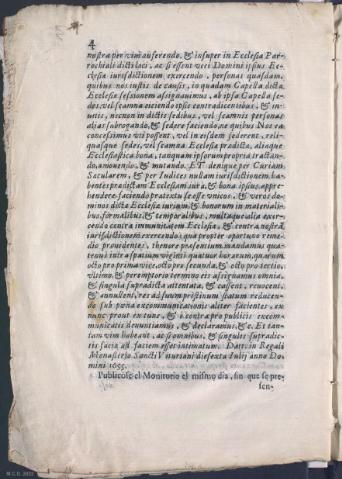 4
nostra per vim auferendo, & insuper in Ecclesia Par-
rochiali dicti loci, ac si essent veri Domini ipsius Ec-
clesia iurisdictionem exercendo, personas quasdam,
quibus nos iustis de causis, in quadam Capella dicta
Ecclesia sessionem assignavimus, ab ipsa Capella se-
des, vel scamna eiiciendo ipsis contradicentibus, & in-
uitis, necnon in dictis sedibus, vel scamnis personas
alias subrogando, & sedere faciendo, ex quibus Nos co
concessimus vt possent, vel in eisdem sederent, reli-
quasque sedes, vel scamna Ecclesia pradicta, aliaque
Ecclesiastica bona, tanquam ipsorum propria tractan-
do, amouendo, & mutando. ET denique per Curiam
Sacularem, & per Iudices nullam iurisdictionem, ha-
bentes pradictam Ecclesiam, iura, & bona ipsius, appre-
hendere faciendo pratextu se esse vnicos, & veros do-
minos dicta Ecclesia iurium, & bonorum in materiali-
bus, formalibus, & temporalibus, multaque alia exer-
cendo contra immunitatem Ecclesia, & contra nostra
iurisdictionem exercendo; quapropter oportuno reme-
dio prouidentes, thenore prasentium mandamus qua-
tenus intra spatium viginti quatuor horarum, quarum
octo pro prima vice, octo pro secunda, & octo pro tertio,
vltimo, & peremptorio termino eis assignamus omnia,
& singula supradicta attentata, & cassent, reuocent,
& annullent, res ad suum pristinum statum reducen-
do sub pœna excomunicationis aliter facientes, ex
nunc prout ex tunc, & è contra pro publicis excom-
municatis denuntiamus, & declaramus, &c. Et tan-
tam vim habeat, ac si omnibus, & singulis supradi-
ctis facie ad faciem esset intimatum. Datt. in Regali
Monasterio Sancti Victoriani die sexta Iulij anno Do-
mini 1695.
Publicòse el Monitorio el mismo dia, sin que se pre-
sen-